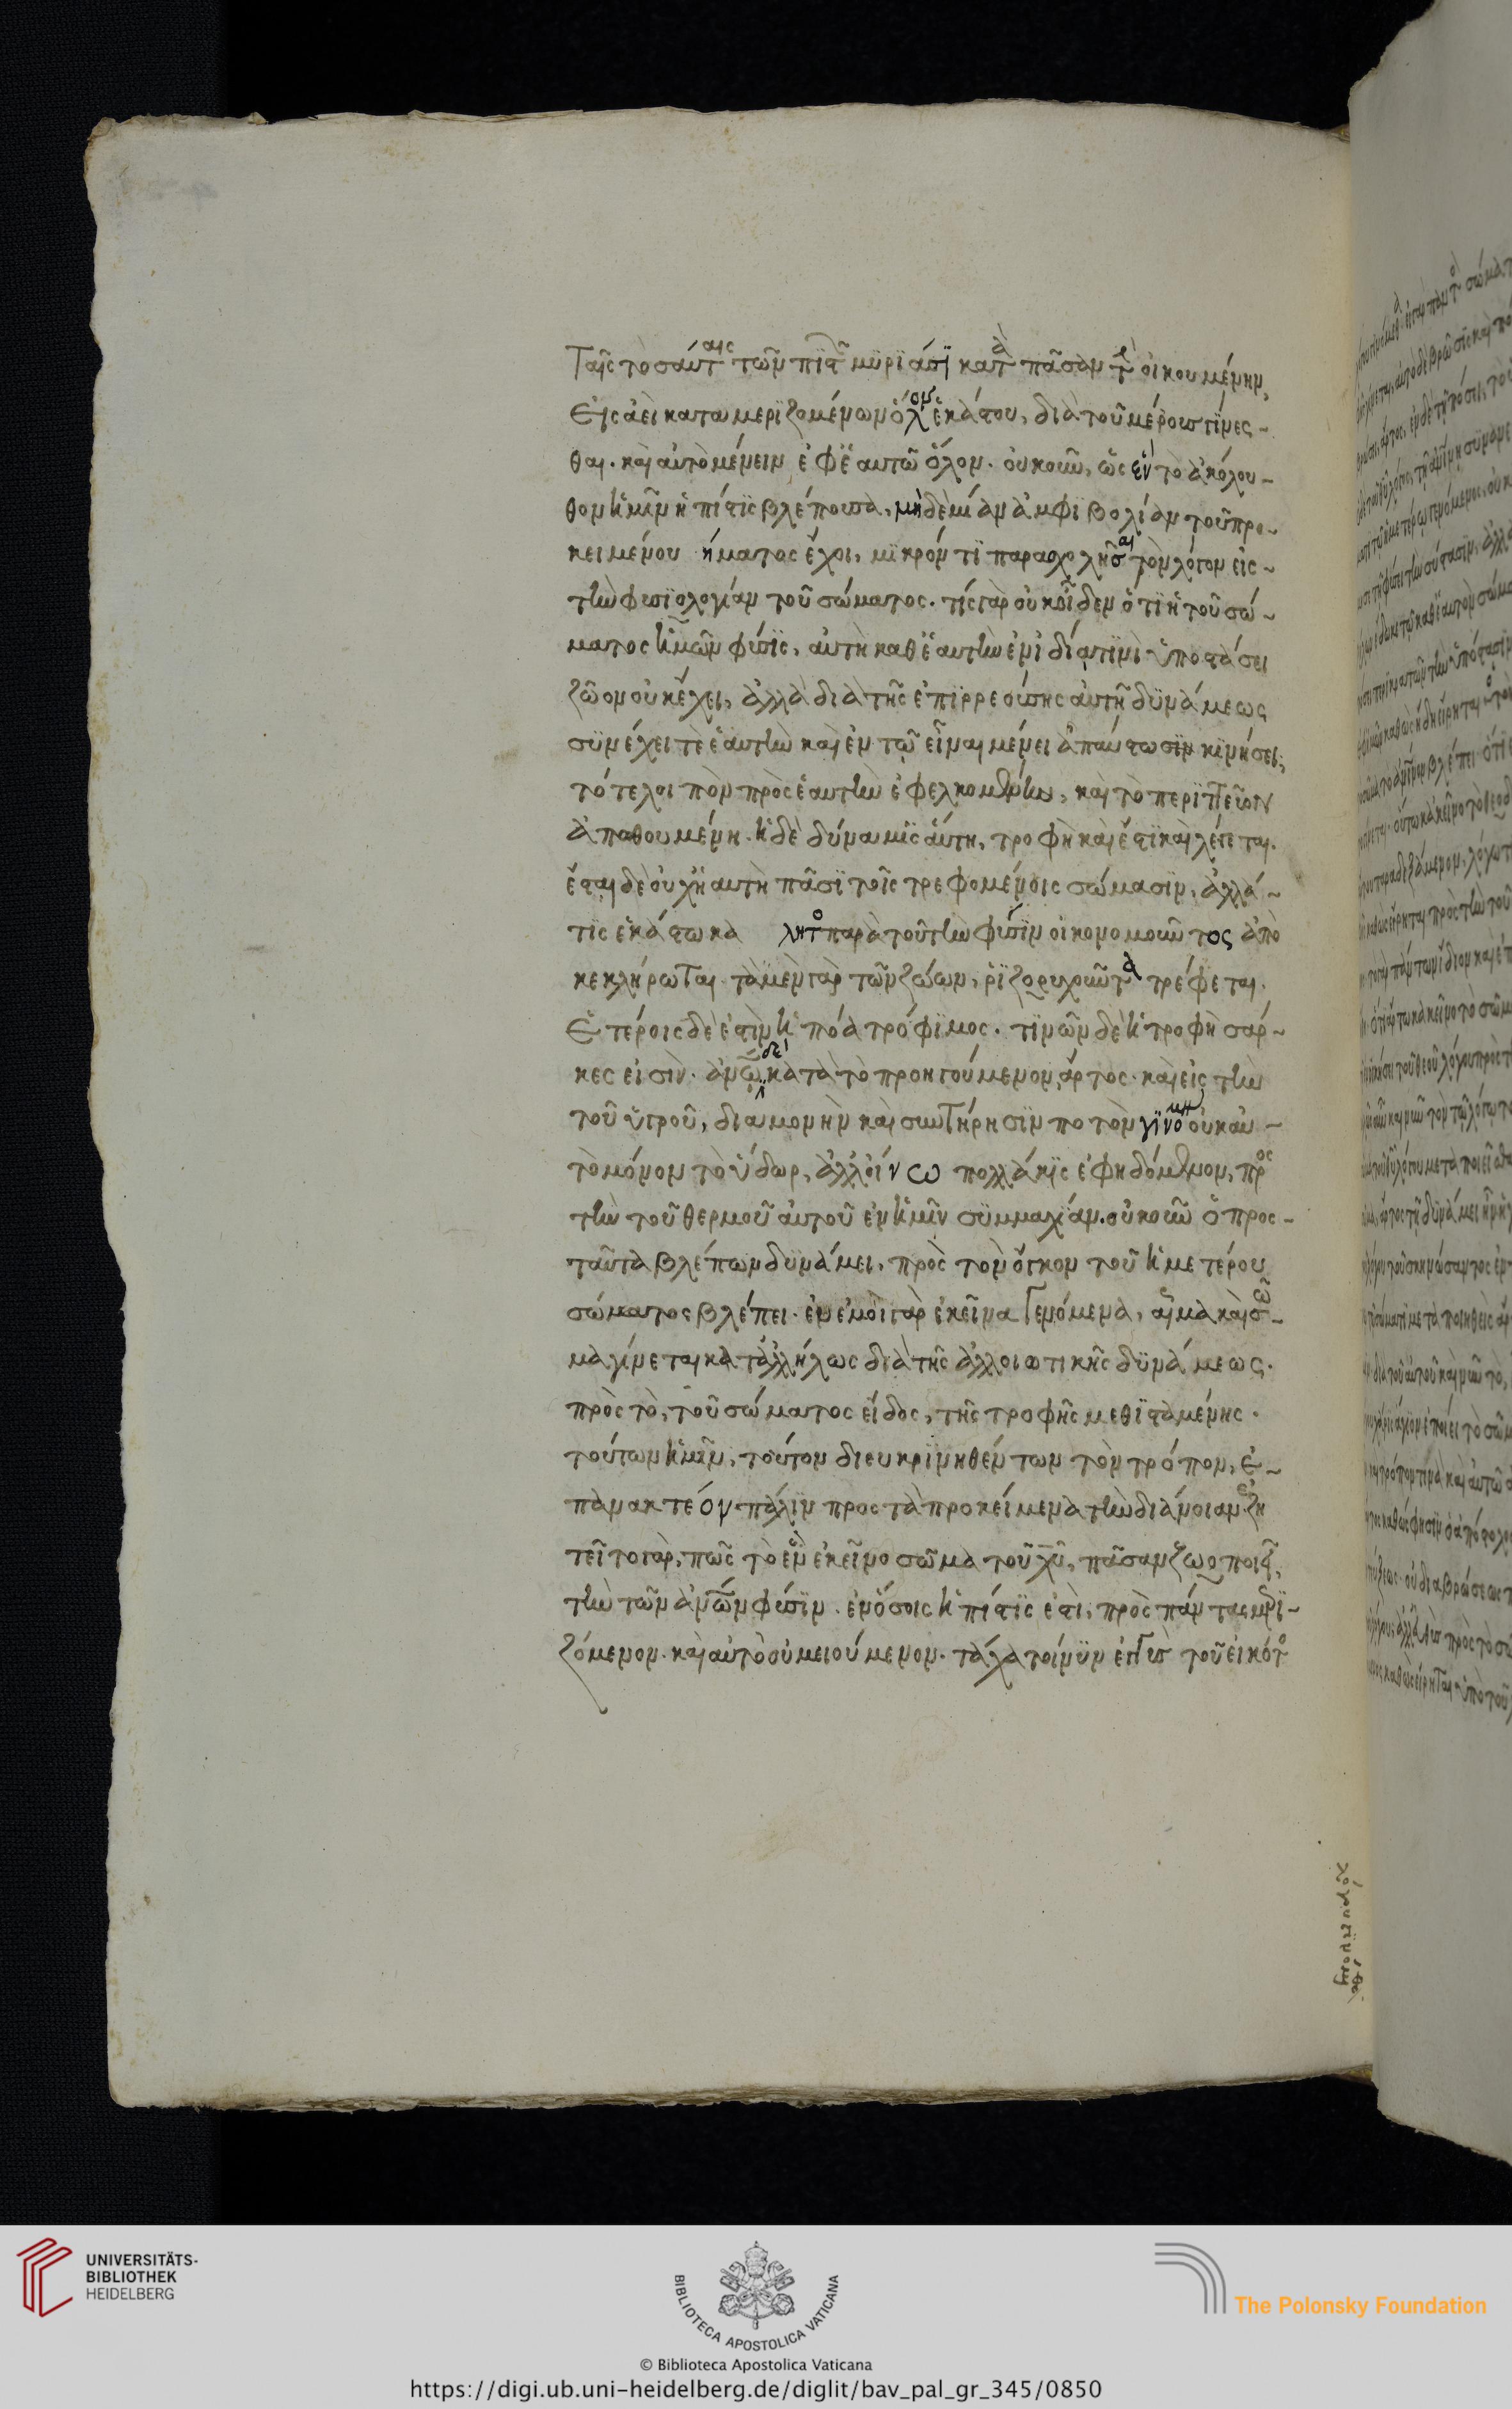 ταῖς τὸσαύταις τῶν πϊστ μϋρϊάσϊ κατὰ πᾶσαν τ οἰκουμένην,
Εἰς ἀεὶ καταμερϊζομένων ὅλον ἑκάστου, διὰ τοῦ μέρους γίνες-
θαι. καὶ αὐτὸ μένειν ἐφ ἑαυτῶ ὅλον. οὐκοῦν, ὡς ἐν τὸ ἀκόλου-
θον ἡμῖν ἡ πίστϊς βλέπουσα, μὴδεμίαν ἀμφϊβολίαν τοῦ προ-
κειμένου ήματος ἔχοι, μϊκρόν τϊ παρασχολῆσαι τὸν λόγον εἰς-
τὴν φυσϊολογίαν τοῦ σώματος. τίς γὰρ οὐκ οἶδεν ὅτϊ ἡ τοῦ σώ-
ματος ἡμῶν φύσϊς, αὐτὴ καθ ἑαυτὴν ἐν ἰδία τϊνὶ ὑποστάσει
ζῶον οὐκ ἔχει, ἀλλὰ διὰ τῆς ἐπϊρρεούσης αὐτῆ δϋνάμεως
σϋνέχει τὲ ἑαυτὴν καὶ ἐν τῷ εἶναι μένει ἀπαύστω σϊν κϊνήσει,
τό τε λοιπὸν πρὸς ἑαυτὴν ἐφελκομένην, καὶ τὸ περϊττεῦον
ἀπαθουμένη. ἡ δὲ δύναμϊς αὕτη, τροφὴ καὶ ἔστϊ καὶ λέγεται.
ἔσται δὲ οὐχ ἡ αὐτὴ πᾶσϊ τοῖς τρεφομένοις σώμασϊν, ἀλλά-
τϊς ἑκάστω κα λητο παρὰ τοῦ τὴν φύσϊν οἰκονομοῦντος ἀπὸ
κεκλήρωται. τὰ μὲν γὰρ τῶν ζώων, ῥϊζορυχοῦντα τρέφεται.
Ἑτέροις δὲ ἐστὶν ἡ πόα τρόφϊμος. τϊνῶν δὲ ἡ τροφὴ σάρ-
κες εἰσὶν. ἀνω δὲ κατὰ τὸ προηγούμενον, ἄρτος. καὶ εἰς τὴν
τοῦ ὑγροῦ, διαμονὴν καὶ συντήρησϊν ποτὸν γϊνό οὐκ αυ-
τὸ μόνον τὸ ὕδωρ, ἀλλ οίνω πολλάκϊς ἐφηδόμενον, πρὸς
τὴν τοῦ θερμοῦ αὐτοῦ ἐν ἡμῖν σϋμμαχίαν. οὐκοῦν ὁ προς-
ταῦτα βλέπων δϋνάμει, πρὸς τὸν ὄγκον τοῦ ἡμετέρου
σώματος βλέπει. ἐν ἐμοὶ γὰρ ἐκεῖνα γενόμενα, αἷμα καὶ σῶ-
μα γίνεται κατάλλήλως διὰ τῆς ἀλλοιωτικῆς δϋνάμεως.
πρὸς τὸ, τοῦ σώματος εἶδος, τῆς τροφῆς μεθϊσταμένης.
τούτων ἡμῖν, τοῦτον διευκρινηθέντων τὸν τρόπον, ἐ-
πανακτέον πάλϊν προς τὰ προκείμενα τὴν διάνοιαν. ἐζη
τεῖτο γὰρ, πῶς τὸ ἐν ἐκεῖνο σῶμα τοῦ χῦ, πᾶσαν ζωοποιεῖ,
τὴν τῶν ἀνων φύσϊν. ἐν ὅσοις ἡ πίστϊς ἐστὶ, πρὸς πάντας μερϊ-
ζόμενον. καὶ αὐτὸ οὐ μειούμενον. τάχα τοίνϋν ἐγγὺς τοῦ εἰκότος
UNIVERSITÄTS-
BIBLIOTHEK
HEIDELBERG
BIBLIOTECA APOSTOLICA VATICANA
The Polonsky Foundation
© Biblioteca Apostolica Vaticana
https://digi.ub.uni-heidelberg.de/diglit/bav_pal_gr_345/0850